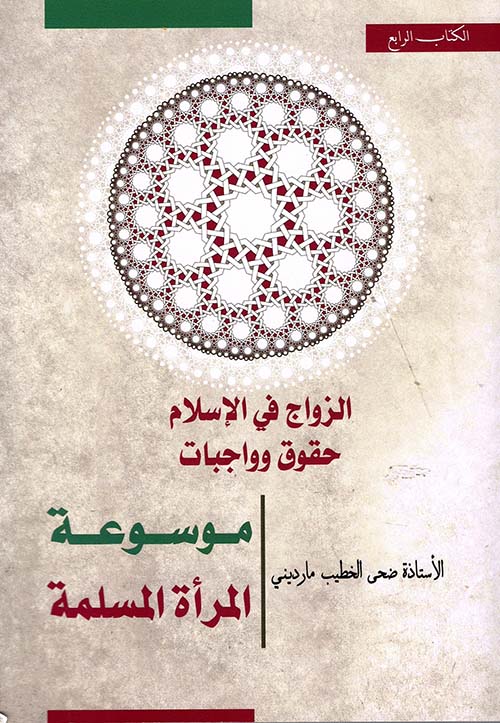 الكتاب الرابع
الزواج في الإسلام
حقوق وواجبات
موسوعة
المرأة المسلمة
الأستاذة ضحى الخطيب مارديني